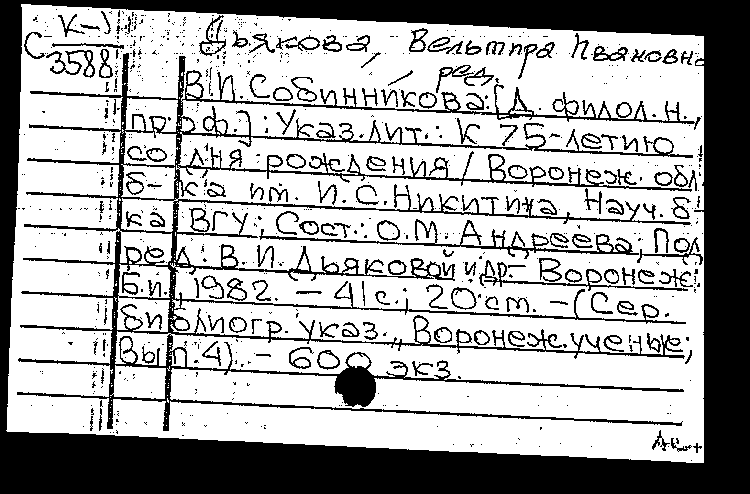 К-1
С 3588
Дьякова, Вельтира Ивановна
ред.
В.И.Собинникова: [Д. филол.н.,
проф.] : Указ.лит.: К 75-летию
со дня рождения / Воронеж. обл
б-ка им. И.С.Никитина, Науч. б-
ка ВГУ; Сост.: О.М. Андреева; Под
ред. В.И. Дьяковой и др.- Воронеж:
Б.и., 1982. – 41 с.; 20 см. – (Сер.
библиогр. указ. „Воронеж.ученые;
Вып.4). – 600 экз.